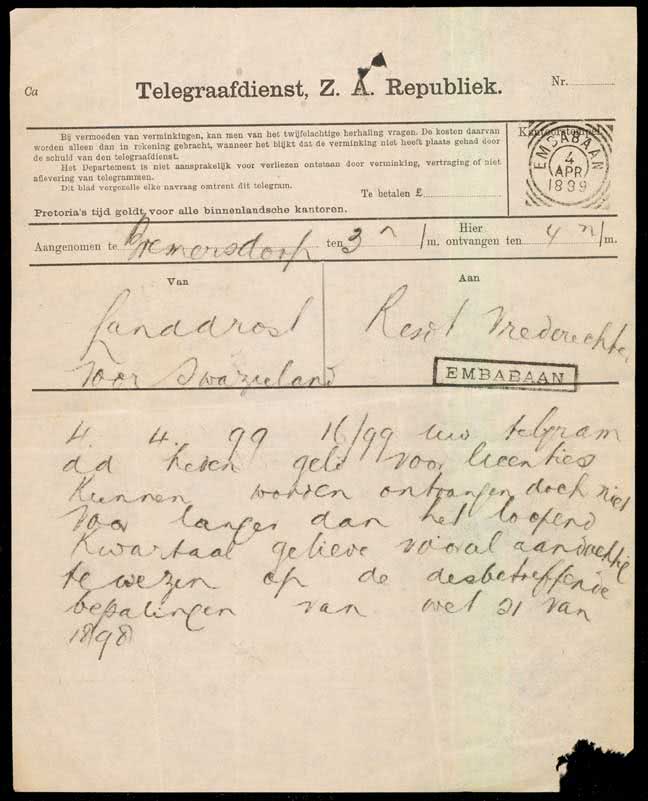 Ca
Telegraafdienst, Z. A. Republiek.
Nr.
Bij vermoeden van verminkingen, kan men van het twijfelachtige herhaling vragen. De kosten daarvan
worden alleen dan in rekening gebracht, wanneer het blijkt dat de verminking niet heeft plaats gehad door
de schuld van den telegraafdienst.
Het Departement is niet aansprakelijk voor verliezen ontstaan door verminking, vertraging of niet
aflevering van telegrammen.
Dit blad vergezelle elke navraag omtrent dit telegram.
Te betalen £
Pretoria's tijd geldt voor alle binnenlandsche kantoren.
Kantoorstempel
EMBABAAN
4
APR
1899
Aangenomen te Bremersdorp ten 3 n /m. Hier ontvangen ten 4 n /m.
Van
Aan
Landdrost
voor Swazieland
Resdt Vrederechter
EMBABAAN
4. 4. 99 16/99 uw telgram
d.d heden geld voor licenties
kunnen worden ontvangen doch niet
voor langer dan het loopend
kwartaal gelieve vooral aandachtig
te wezen op de desbetreffende
bepalingen van wet 21 van
1898